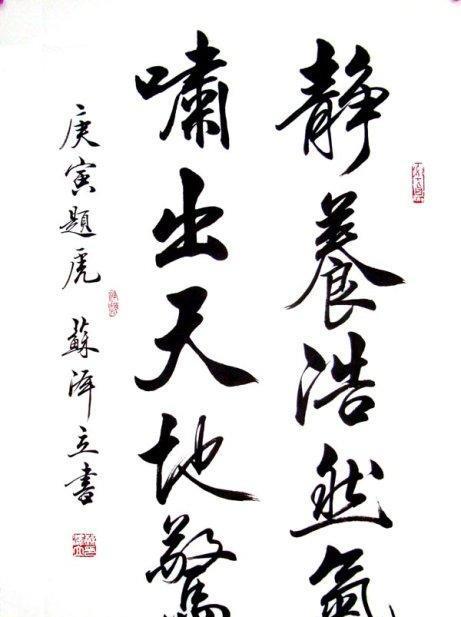 静養浩然氣
嘯出天地驚
庚寅題虎 蘇澤立書